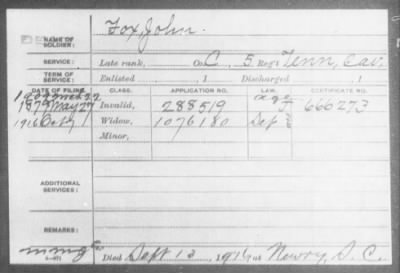 NAME OF SOLDIER: Fox, John.
SERVICE: Late rank, Co. C, 5 Reg't Tenn. Cav.
TERM OF SERVICE: Enlisted , 1 Discharged , 1
DATE OF FILING. CLASS. APPLICATION NO. LAW. CERTIFICATE NO.
1879 May 27 Invalid, 288519 666273
1916 Oct 7 Widow, 1076180 Sep
Minor,
ADDITIONAL SERVICES:
REMARKS:
Died Sept 13, 1916 at Newry, S. C.